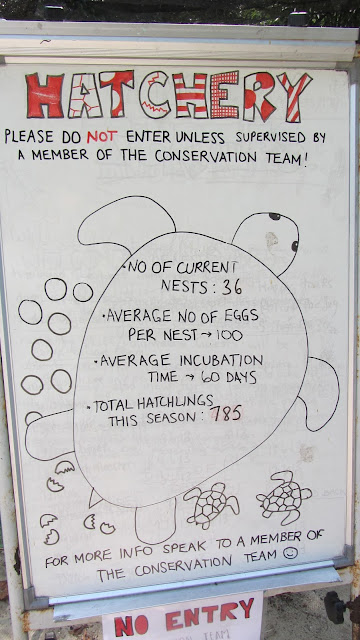 HATCHERY
PLEASE DO NOT ENTER UNLESS SUPERVISED BY
A MEMBER OF THE CONSERVATION TEAM!
• NO OF CURRENT
NESTS: 36
• AVERAGE NO OF EGGS
PER NEST → 100
• AVERAGE INCUBATION
TIME → 60 DAYS
• TOTAL HATCHLINGS
THIS SEASON: 785
FOR MORE INFO SPEAK TO A MEMBER OF
THE CONSERVATION TEAM ☺
NO ENTRY